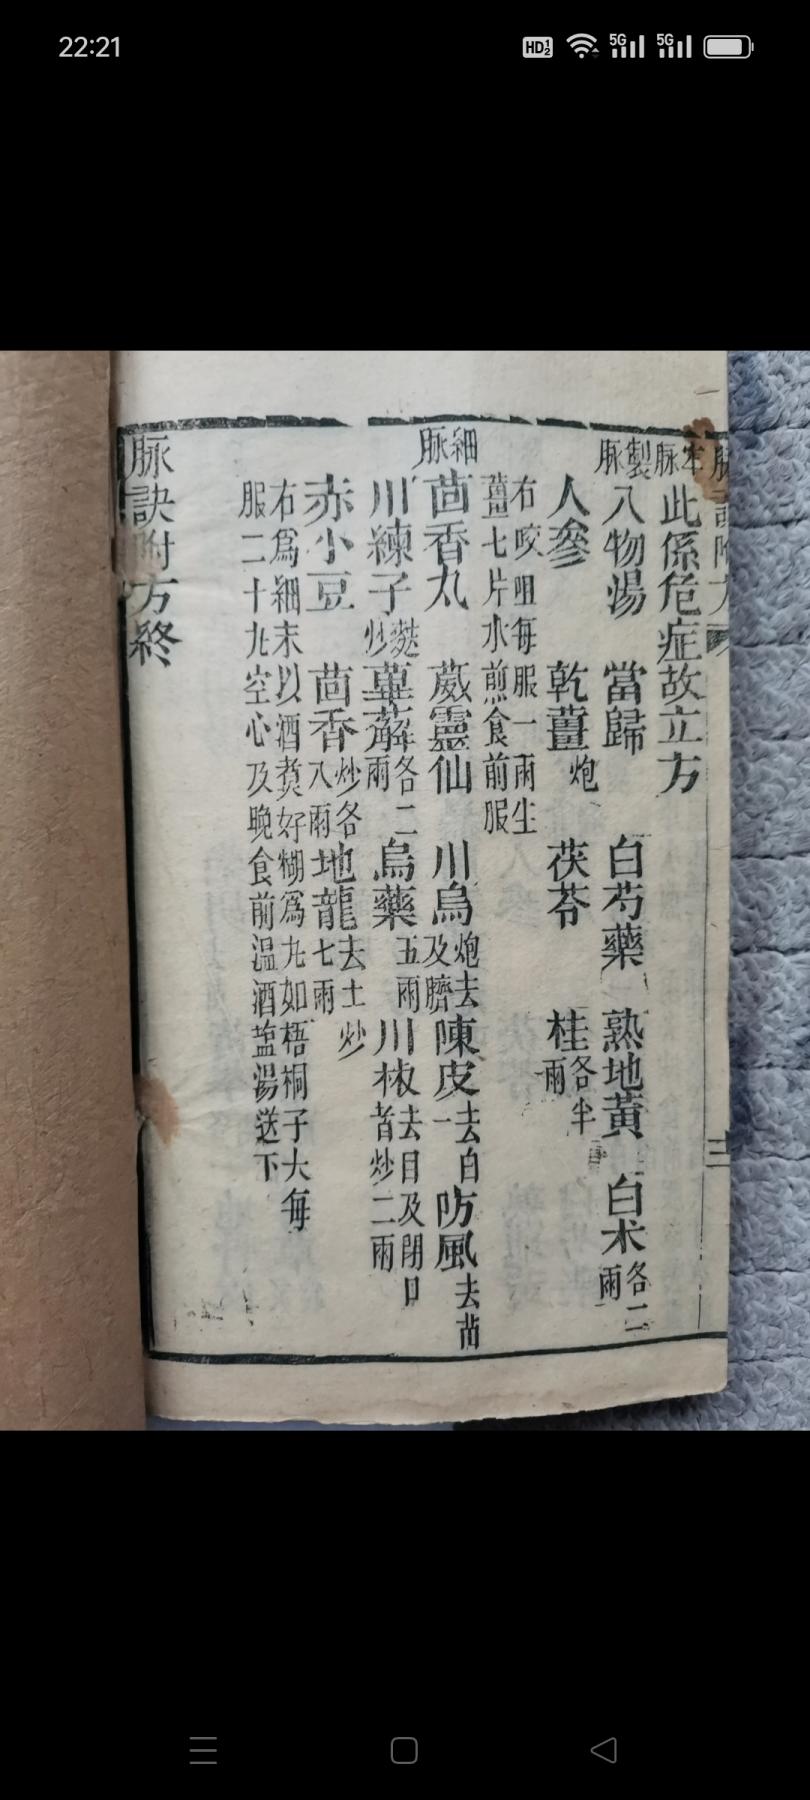 22:21
脉訣附方
牢脉 此係危症故立方
製脉 八物湯 當歸 白芍藥 熟地黃 白朮各二兩
人參 乾薑炮 茯苓 桂各半兩
右㕮咀每服一兩生薑七片水煎食前服
細脉 茴香丸 葳靈仙 川烏炮去及臍 陳皮去白一 防風去苗
川練子炒 萆薢各二兩 烏藥五兩 川椒去目及閉口者炒二兩
赤小豆 茴香炒各八兩 地龍去土炒七兩
右爲細末以酒煑好糊爲丸如梧桐子大每服二十丸空心及晚食前溫酒盐湯送下
脉訣附方終